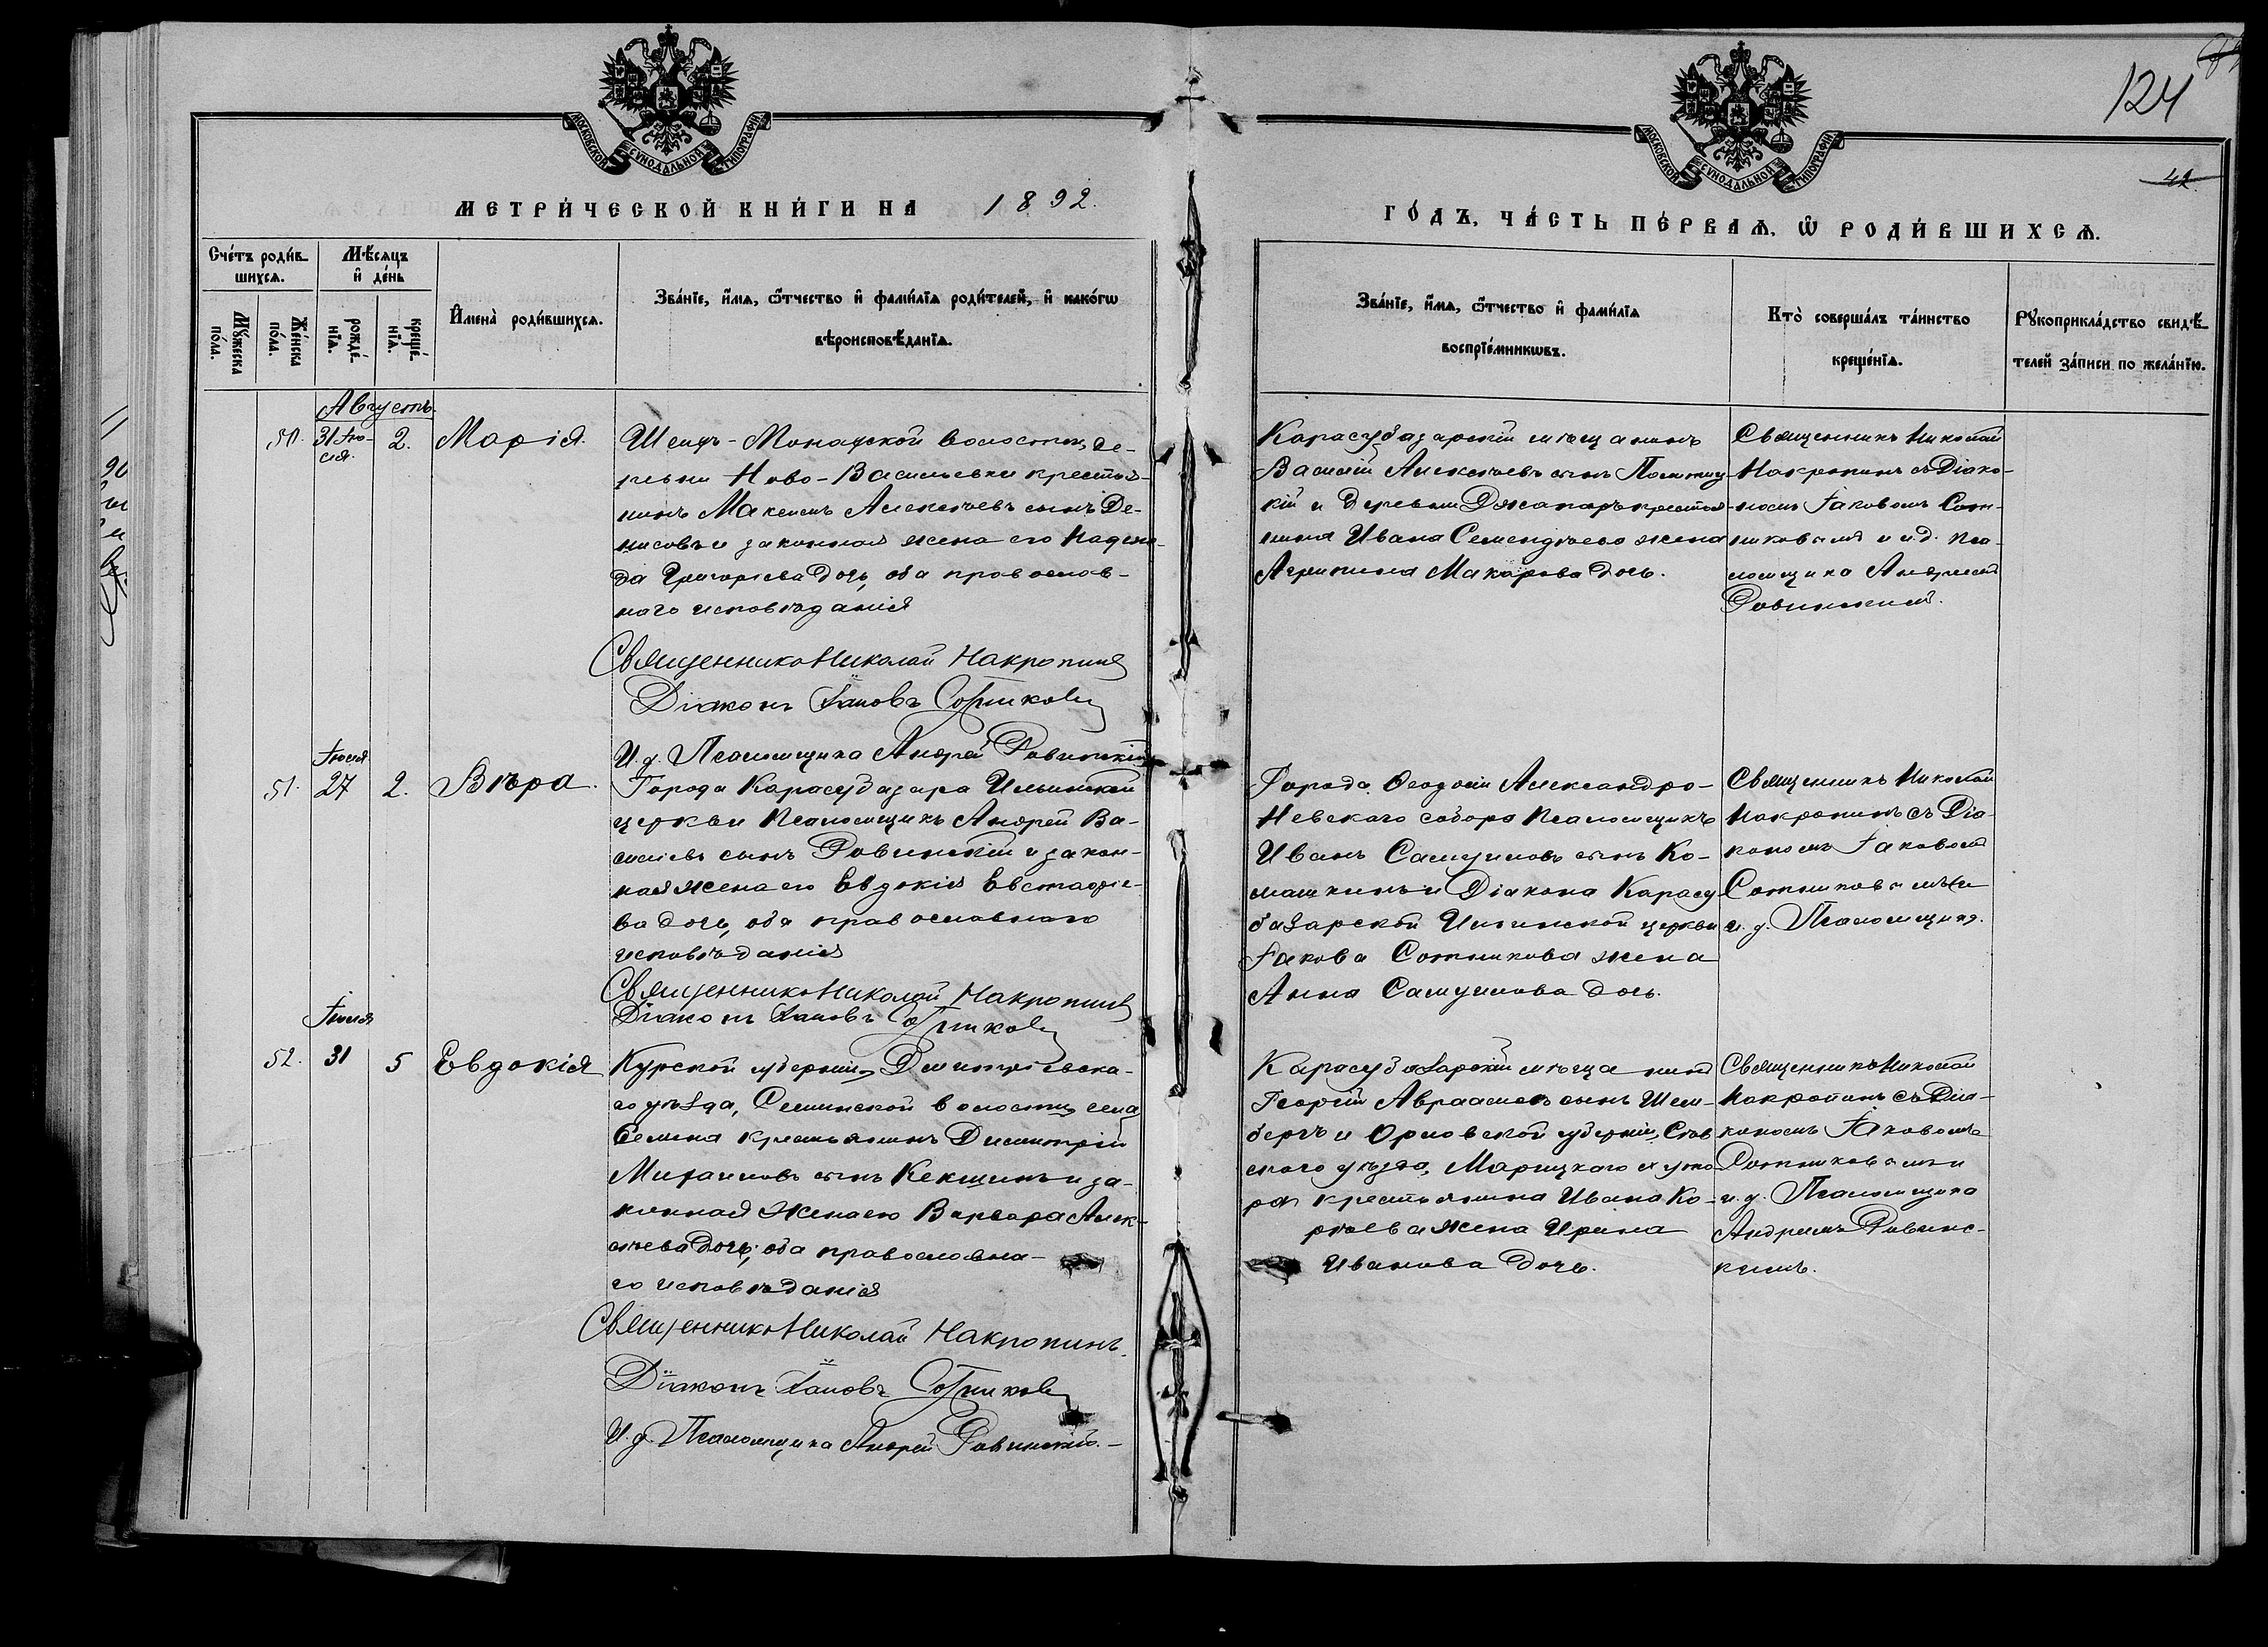 124
42.
МОСКОВСКОЙ СѴНОДАЛЬНОЙ ТИПОГРАФІИ
МОСКОВСКОЙ СѴНОДАЛЬНОЙ ТИПОГРАФІИ
МЕТРИ́ЧЕСКОЙ КНИ́ГИ НА 1892.
ГО́ДЪ, ЧА́СТЬ ПЕ́РВАѦ, Ѡ҆ РОДИ́ВШИХСѦ.
Сче́тъ роди́в-
шихсѧ.
Мѣ́сѧцъ
и҆ де́нь
Мꙋ́жеска
по́ла.
Же́нска
по́ла.
рожде́-
нїѧ.
креще́-
нїѧ.
И҆мена̀ роди́вшихсѧ.
Зва́нїе, и҆́мѧ, ѻ҆́тчество и҆ фами́лїѧ роди́телей, и҆ како́гѡ
вѣроисповѣ́данїѧ.
Зва́нїе, и҆́мѧ, ѻ҆́тчество и҆ фами́лїѧ
воспрїе́мникѡвъ.
Кто̀ соверша́лъ та́инство
креще́нїѧ.
Рꙋкоприкла́дство свидѣ́-
телей за́писи по жела́нїю.
Августъ.
50. 31 Iю-
ля. 2. Марія.
Шейхъ-Монахской волости, де-
ревни Ново-Васильевки крестья-
нинъ Максимъ Алексѣевъ сынъ Де-
нисовъ и законная жена его Надеж-
да Григорьева дочь, оба православ-
наго исповѣданія
Священникъ Николай Накропинъ
Діаконъ Іаковъ Сотниковъ
И. д. Псаломщика Андрей Ровинскій
Карасубазарскій мѣщанинъ
Василій Алексѣевъ сынъ
кій и деревни Джапаръ крестья-
нина Ивана Семендяева жена
Агрипина Макарова дочь.
Священникъ Николай
Накропинъ съ Діако-
номъ Іаковомъ Сот-
никовымъ и и.д. пса-
ломщика Андреемъ
Ровинскимъ.
Іюля
51. 27 2. Вѣра.
Города Карасубазара Ильинской
церкви Псаломщикъ Андрей Ва-
сильевъ сынъ Ровинскій и закон-
ная жена его Евдокія Евстафіе-
ва дочь, оба православнаго
исповѣданія
Священникъ Николай Накропинъ
Діаконъ Іаковъ Сотниковъ
Города Ѳеодосіи Александро-
Невскаго собора Псаломщикъ
Иванъ Самуиловъ сынъ Ко-
машкинъ и Діакона Карасу-
базарской Ильинской церкви
Іакова Сотникова жена
Анна Самуилова дочь.
Священникъ Николай
Накропинъ съ Діа-
кономъ Іаковомъ
Сотниковымъ и
и. д. Псаломщика.
Іюля
52. 31 5 Евдокія
Курской губерніи, Дмитріевска-
го уѣзда, волости, села
крестьянинъ Димитрій
Михаиловъ сынъ Кекшинъ и за-
конная жена его Варвара Алек-
сѣева дочь; оба православна-
го исповѣданія
Священникъ Николай Накропинъ.
Діаконъ Іаковъ Сотниковъ
И. д. Псаломщика Андрей Ровинскій.
Карасубазарскій мѣщанинъ
Георгій Авраамовъ сынъ Шем-
бергъ и Орловской губерніи,
скаго уѣзда,
крестьянина Ивана Ко-
жена Ирина
Иванова дочь.
Священникъ Николай
Накропинъ съ Діа-
кономъ Іаковомъ
Сотниковымъ и
и. д. Псаломщика
Андреемъ Ровинс-
кимъ.